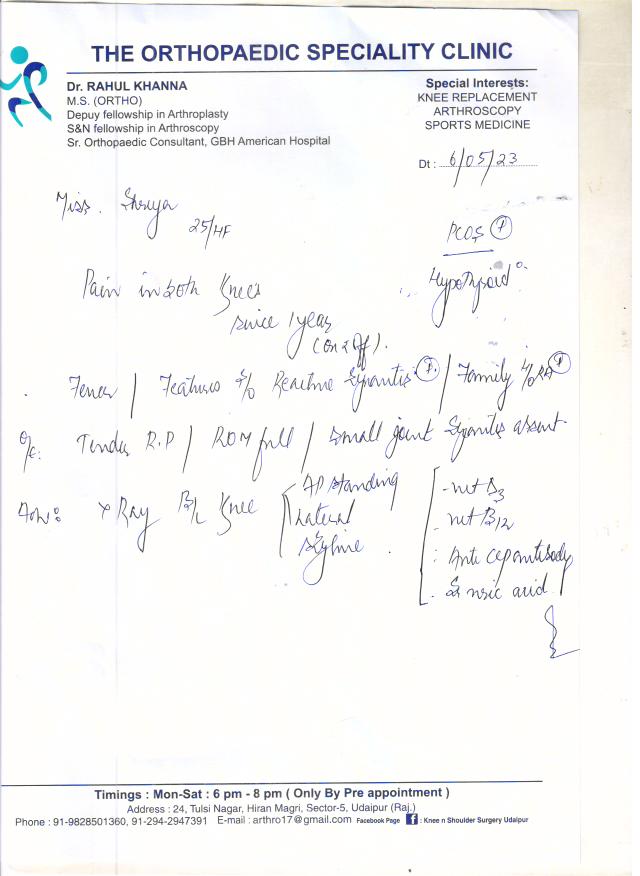 THE ORTHOPAEDIC SPECIALITY CLINIC
Dr. RAHUL KHANNA
M.S. (ORTHO)
Depuy fellowship in Arthroplasty
S&N fellowship in Arthroscopy
Sr. Orthopaedic Consultant, GBH American Hospital
Special Interests:
KNEE REPLACEMENT
ARTHROSCOPY
SPORTS MEDICINE
Dt : 6/05/23
Miss. Shreya
25/F
PCOS (P)
Hypothyroid
Pain in both Knees
since 1 year
(on & off).
Fever / Features s/o Reactive Synovitis (P) / Family h/o RA (P)
O/E: Tender R.P / ROM full / small joint Synovitis absent.
Adv: X Ray B/L Knee
AP standing
lateral
skyline
- vit D3
- vit B12
: Anti ccp antibody
. S. uric acid
Timings : Mon-Sat : 6 pm - 8 pm ( Only By Pre appointment )
Address : 24, Tulsi Nagar, Hiran Magri, Sector-5, Udaipur (Raj.)
Phone : 91-9828501360, 91-294-2947391 E-mail : arthro17@gmail.com Facebook Page f : Knee n Shoulder Surgery Udaipur